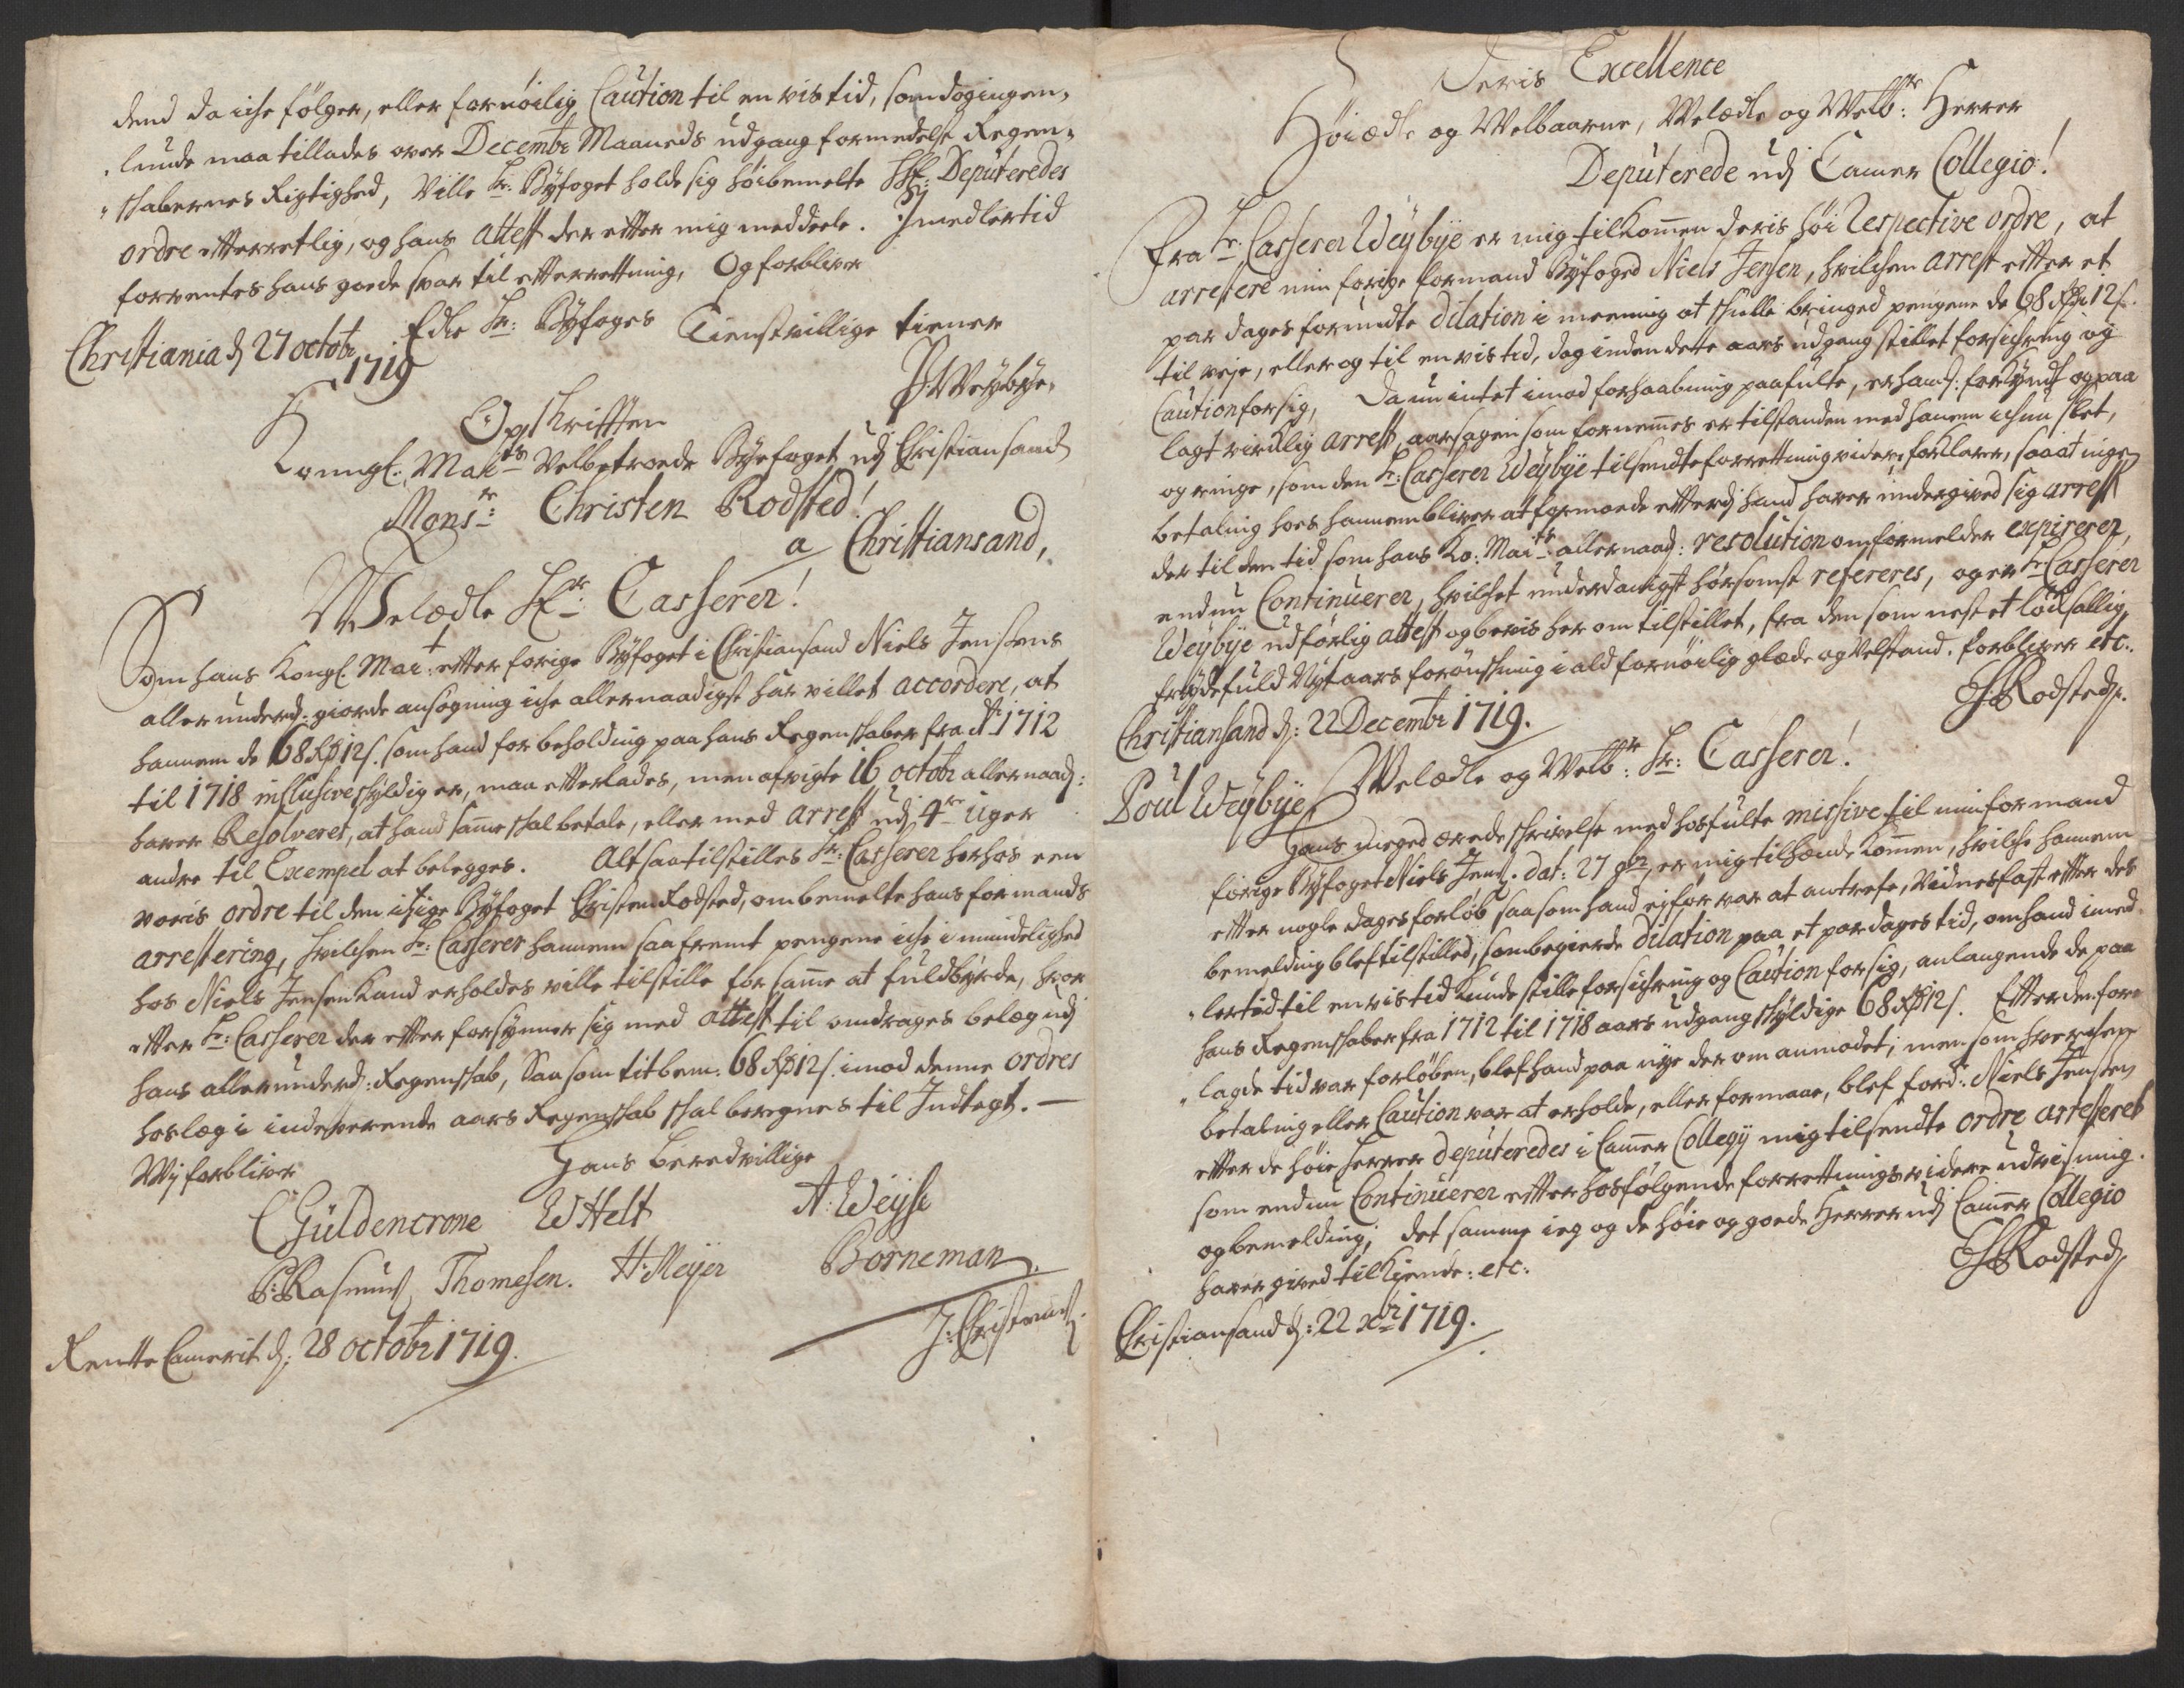 dend da iche følger, eller fornøilig Caution til en vis tid, som dog ingen,
lunde maa tillades over Decembr Maaneds udgang formedelst Regen,
skabernes Rigtighed, Ville Hr: Byfoget holde sig høibemelte HH: Deputeredes
ordre efterretlig, og hans attest der efter mig meddeele. Jmedlertid
forventes hans goede svar til efterretning, Og forbliver
Edle Hr: Byfoges Tienstvillige tiener
Christiania d 27 octobr
1719
P: Weybye.
Opskriften
Kongl: Maits Velbetroede Byefoget udj Christiansand
Monsr: Christen Rodsted!
a Christiansand,
Welædle Hr: Casserer!
Som hans Kongl. Mai:t efter forige Byfoget i Christiansand Niels Jensens
allerunderd: giorde ansøgning iche allernaadigst har villet accordere, at
hannem de 68 Rd 12 s. som hand for beholding paa hans Regenskaber fra Ao 1712
til 1718 inclusive skyldig er, maa efterlades, men afvigte 16 octobr allernaad:
haver Resolveret, at hand samme skal betale, eller med arrest udj 4re uger
andre til Exempel at belegges. Alt saa tilstilles Hr: Casserer herhos een
voris ordre til den itzige Byfoget Christen Rodsted, om bemelte hans formands
arrestering, hvilchen Hr: Casserer hannem saafremt pengene iche i mindelighed
hos Niels Jensen kand erholdes ville tilstille for samme at fuldbyrde, hvor
efter Hr: Casserer der efter forsynner sig med attest til omdrages belæg udj
hans allerunderd: Regenskab, Saasom titbem: 68 Rd 12 s. imod denne ordres
hoslæg i indeverende aars Regenskab skal beregnes til Jndtegt. —
Wj forbliver
Hans beredvillige
C Güldencrone W Helt A: Weyse
P: Rasmus Thomesen. H: Meyer Borneman
J: Christens
Rentte Cammerit d: 28 octobr 1719.
Deris Excellence
Høiædle og Welbaarne, Welædle og Welb:r Herrer
Deputerede udj Camer Collegio!
Fra Hr: Casserer Weybye er mig tilkommen deris høi Respective ordre, at
arrestere min forige formand Byfoged Niels Jensen, hvilchen arrest efter et
par dages forundte dilation i meening at skulle bringed pengene de 68 Rdr 12 s.
til veje, eller og til en vis tid, dog inden dette aars udgang stillet forsichring og
Caution for sig, Da nu intet imod forhaabning paafulte, er hand: forkyndt og paa
lagt virklig arrest, aarsagen som fornemmes er tilstanden med hannem ichun slet,
og ringe, som den Hr: Casserer Weybye tilsendte forrettning videre forklarer, saa at ingen
betaling hoes hannem bliver at formoede efterdj hand haver undergived sig arrest
der til den tid som hans Ko: Maits allernaad: resolution omformelder expirerer,
endnu Continuerer, hvilchet underdanigst hørsomst refereres, og er Hr: Casserer
Weybye udførlig attest og bevis her om tilstillet, fra den som nest et løcksallig
frydefuld Nytaars forønskning i ald fornøilig glæde og Velstand. forbliver etc.
C Rodsted.
Christiansand d: 22 Decembr 1719.
Welædle og Welb:r Hr: Casserer!
Poul Weybye
Hans meged ærede skrivelse med hosfulte missive til min formand
forige Byfoget Niels Jens: dat: 27 gbr, er mig tilhænde kommen, hvilche hannem
efter nogle dages forløb saasom hand ej før var at antrefe, Vidnesfast efter des
bemelding blef tilstilled, som begierde dilation paa et par dages tid, om hand imed,
lertid til en vis tid kunde stille forsichring og Caution for sig, anlangende de paa
hans Regenskaber fra 1712 til 1718 aars udgang skyldige 68 Rd 12 s. Efter den fore
lagde tid var forløben, blef hand paa nye der om anmodet; men som hverchen
betaling eller Caution var at erholde, eller formaae, blef ford: Niels Jensen
efter de høie Herrer deputeredes i Camer Collegij mig tilsendte ordre arresteret
som endnu Continuerer efter hosfølgende forrettnings videre udvisning.
og bemelding; det samme ieg og de høie og goede Herrer udj Camer Collegio
haver gived tilkiende: etc:
C Rodsted
Christiansand d: 22 xbr 1719.